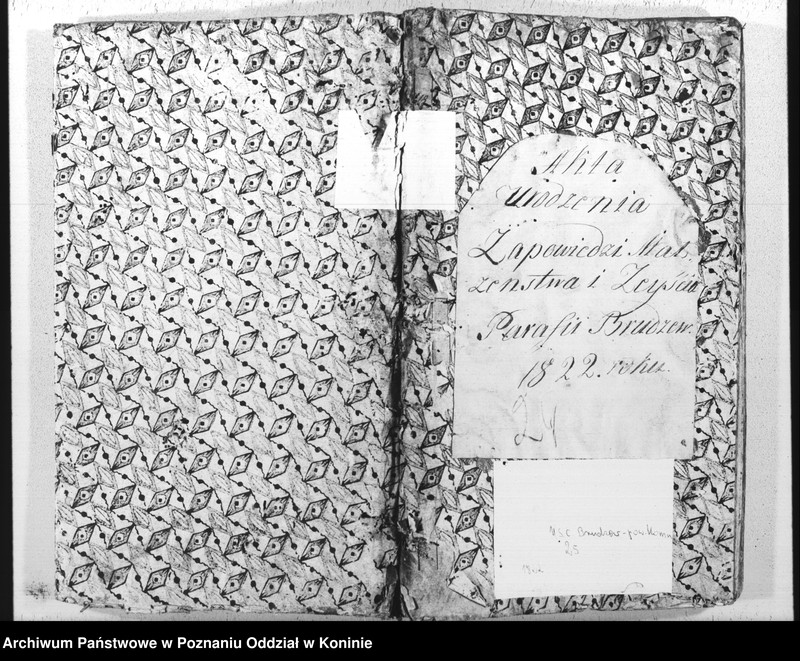 Akta
Urodzenia
Zapowiedzi Mał
zenstwa i Zeyścia
Parafii Brudzew.
1822. roku.
24
USC Brudzew-pow.
25
Archiwum Państwowe w Poznaniu Oddział w Koninie